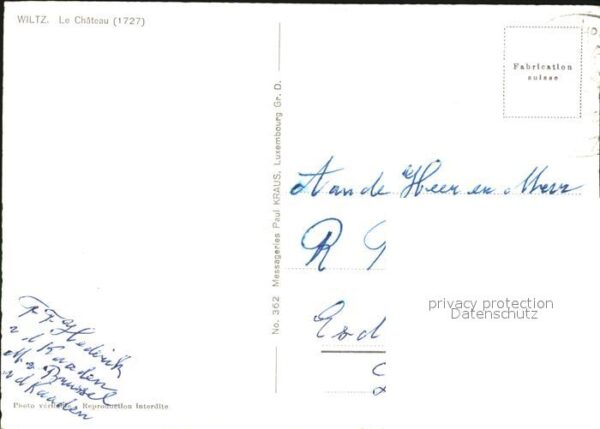 WILTZ. Le Château (1727)
Fabrication
suisse
No. 362 Messageries Paul KRAUS, Luxembourg Gr. D.
Aan de Heer en Mevr
R G
privacy protection
Datenschutz
Eod
v d Kaaden
M v Brussel
v d Kaaden
Photo Reproduction interdite